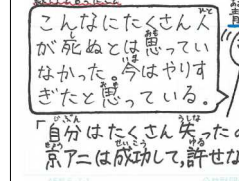 こんなにたくさん人
が死ぬとは思ってい
なかった。今はやりす
ぎたと思っている。
「自分はたくさん失ったの
京アニは成功して、許せな